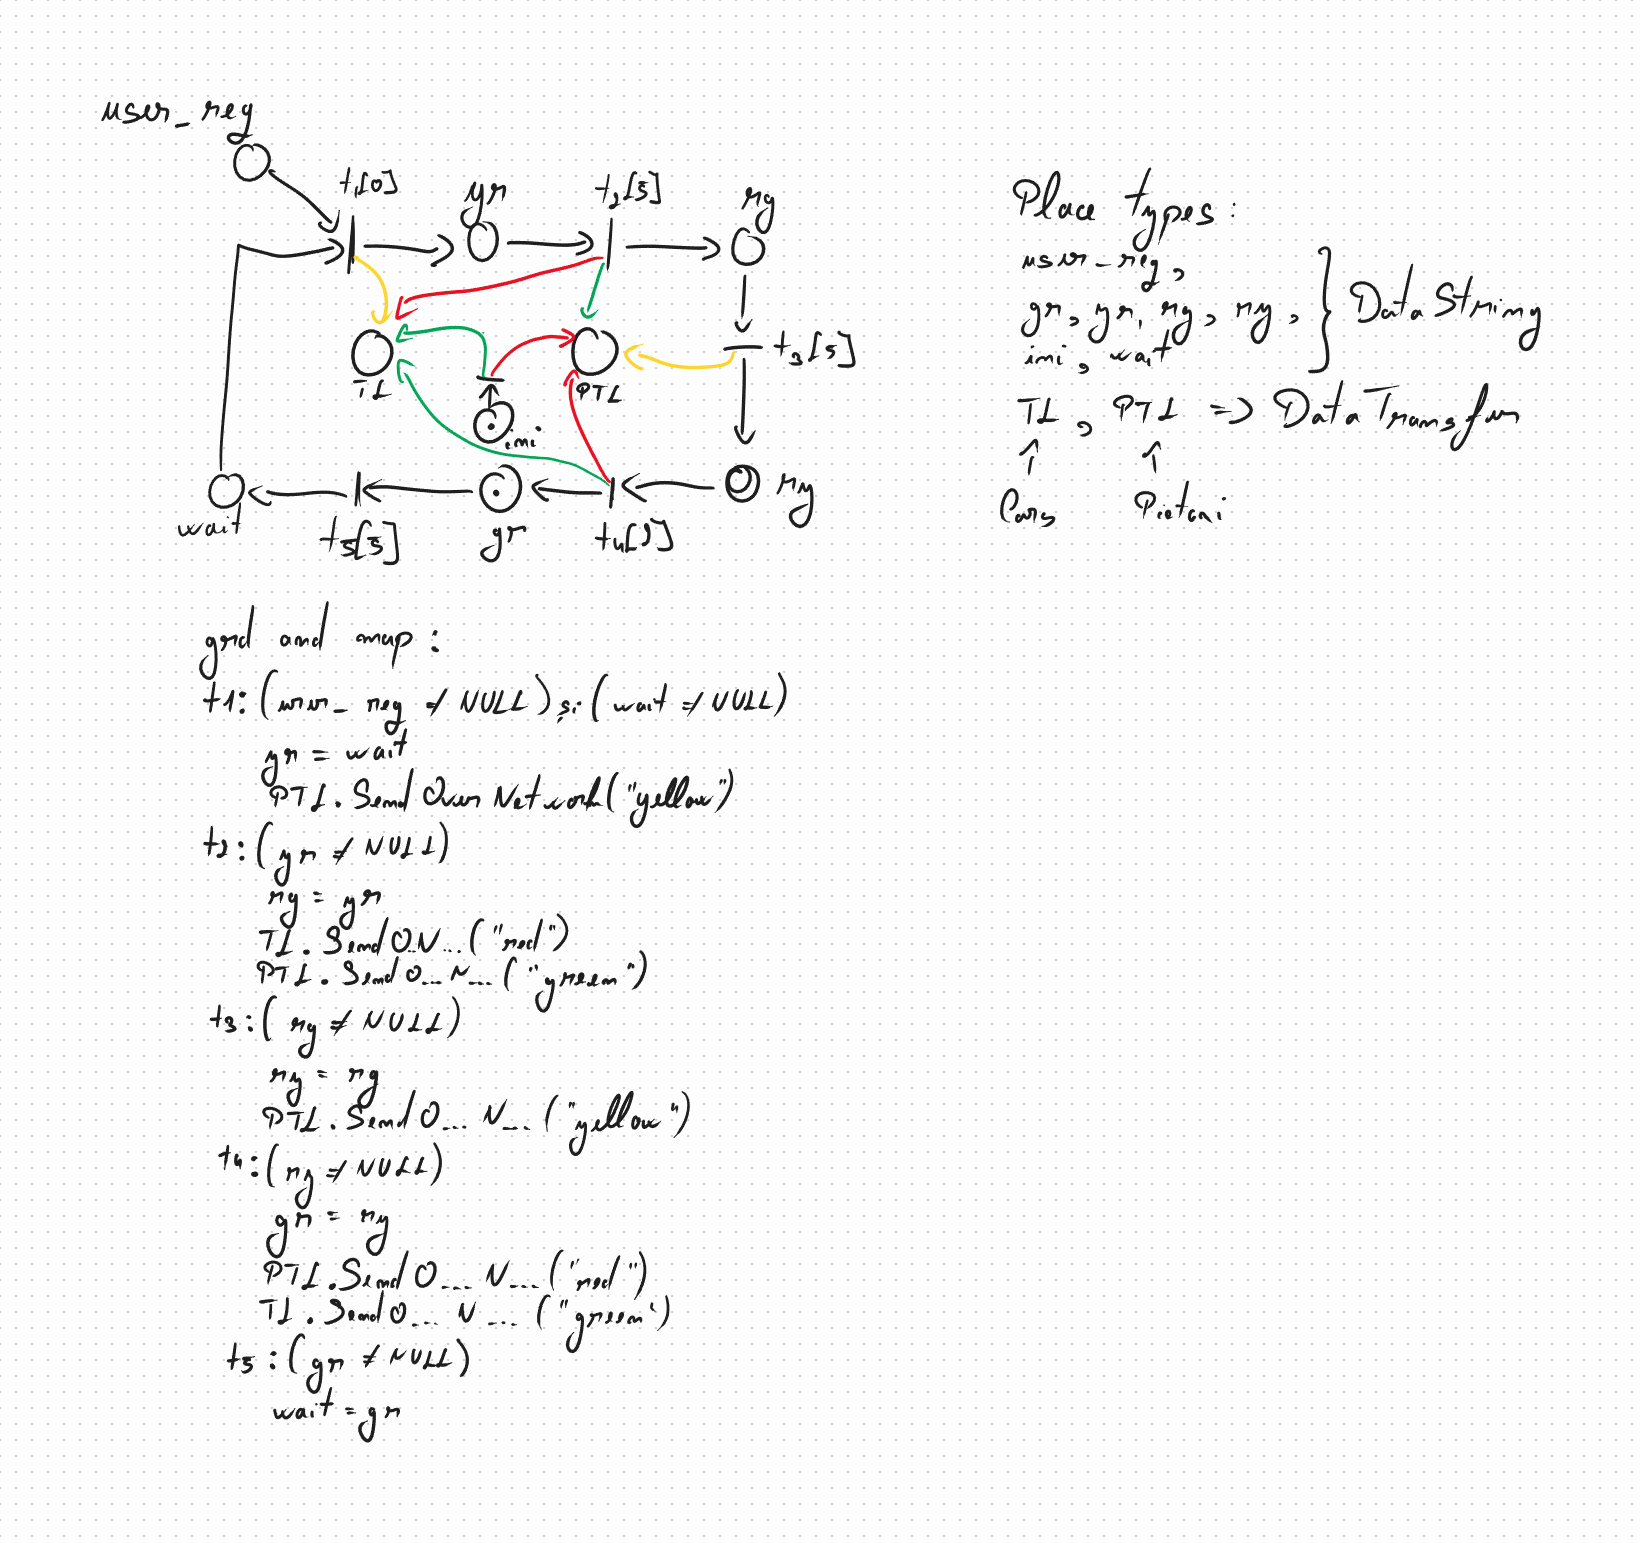 user_req
t1[0]
yr
t2[5]
rg
TL
PTL
t3[5]
ini
wait
t5[5]
gr
t4[5]
ry
Place types:
user_req,
gr, yr, rg, ry, } DataString
ini, wait
TL, PTL => DataTransfer
↑ ↑
Cars Pietoni
grd and map:
t1: (user_req ≠ NULL) și (wait ≠ NULL)
yr = wait
PTL.SendOverNetwork("yellow")
t2: (yr ≠ NULL)
rg = yr
TL.SendO..N...("red")
PTL.SendO...N...("green")
t3: (rg ≠ NULL)
ry = rg
PTL.SendO...N...("yellow")
t4: (ry ≠ NULL)
gr = ry
PTL.SendO....N...("red")
TL.SendO...N...("green")
t5: (gr ≠ NULL)
wait = gr